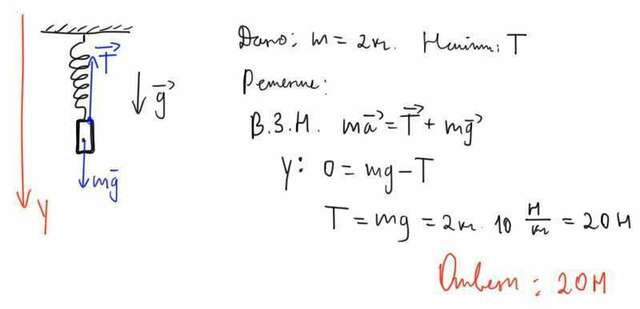 T⃗
g⃗
mg⃗
Y
Дано: m = 2кг. Найти: T
Решение:
В.З.Н. ma⃗ = T⃗ + mg⃗
Y: 0 = mg - T
T = mg = 2кг · 10 Н/кг = 20 Н
Ответ: 20 Н